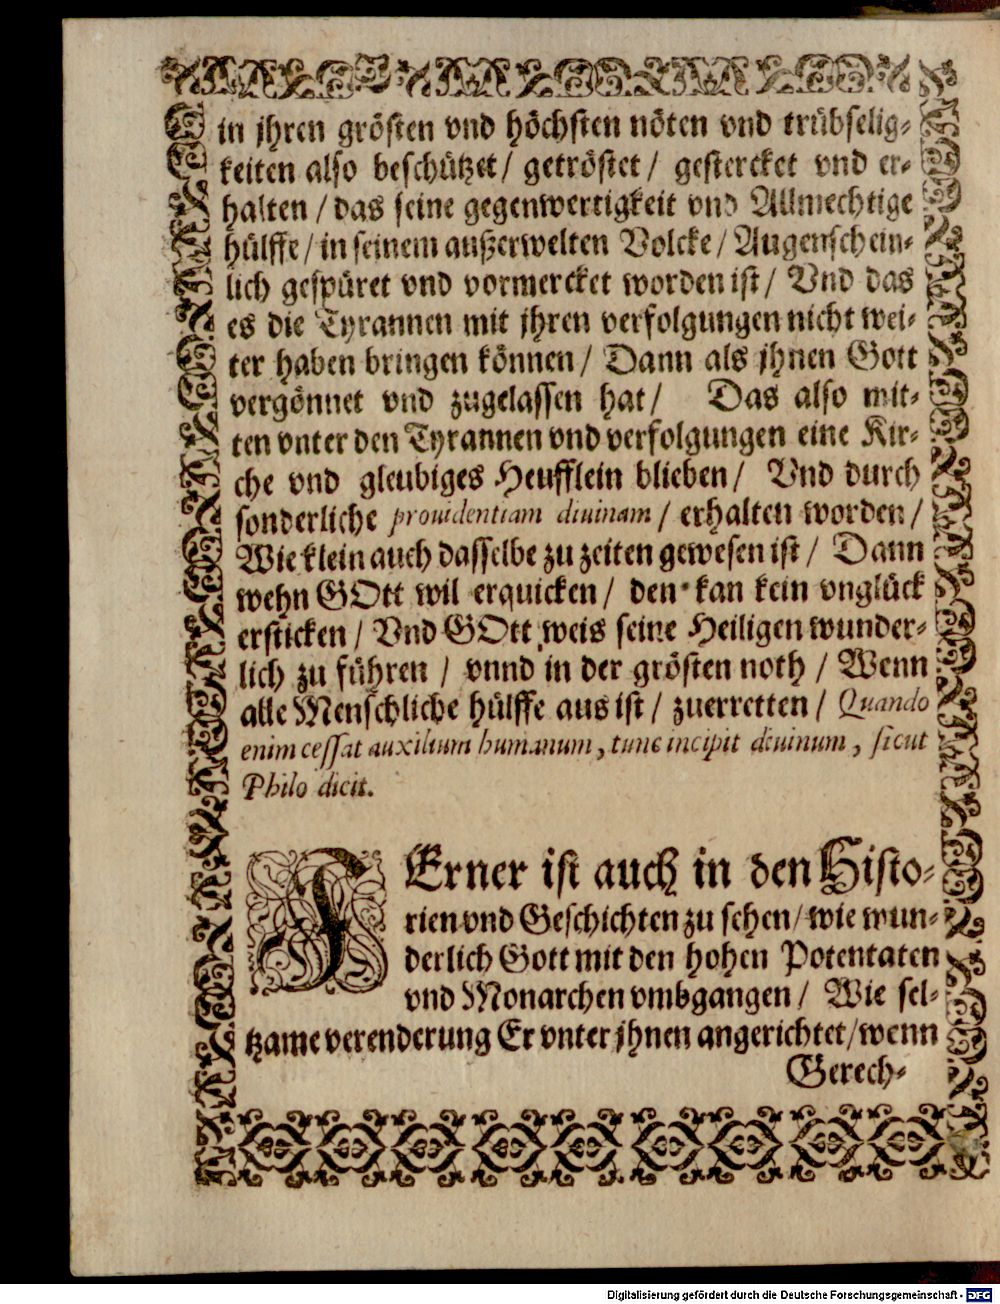 in jhren grösten vnd höchsten nöten vnd trübselig-
keiten also beschützet/ getröstet/ gestercket vnd er-
halten/ das seine gegenwertigkeit vnd Allmechtige
hülffe/ in seinem außerwelten Volcke/ Augenschein-
lich gespüret vnd vormercket worden ist/ Vnd das
es die Tyrannen mit jhren verfolgungen nicht wei-
ter haben bringen können/ Dann als jhnen Gott
vergönnet vnd zugelassen hat/ Das also mit-
ten vnter den Tyrannen vnd verfolgungen eine Kir-
che vnd gleubiges Heufflein blieben/ Vnd durch
sonderliche prouidentiam diuinam/ erhalten worden/
Wie klein auch dasselbe zu zeiten gewesen ist/ Dann
wehn GOtt wil erquicken/ den kan kein vnglück
ersticken/ Vnd GOtt weis seine Heiligen wunder-
lich zu führen/ vnnd in der grösten noth/ Wenn
alle Menschliche hülffe aus ist/ zuerretten/ Quando
enim cessat auxilium humanum, tunc incipit diuinum, sicut
Philo dicit.
FErner ist auch in den Histo-
rien vnd Geschichten zu sehen/ wie wun-
derlich Gott mit den hohen Potentaten
vnd Monarchen vmbgangen/ Wie sel-
tzame verenderung Er vnter jhnen angerichtet/ wenn
Gerech-
Digitalisierung gefördert durch die Deutsche Forschungsgemeinschaft - DFG